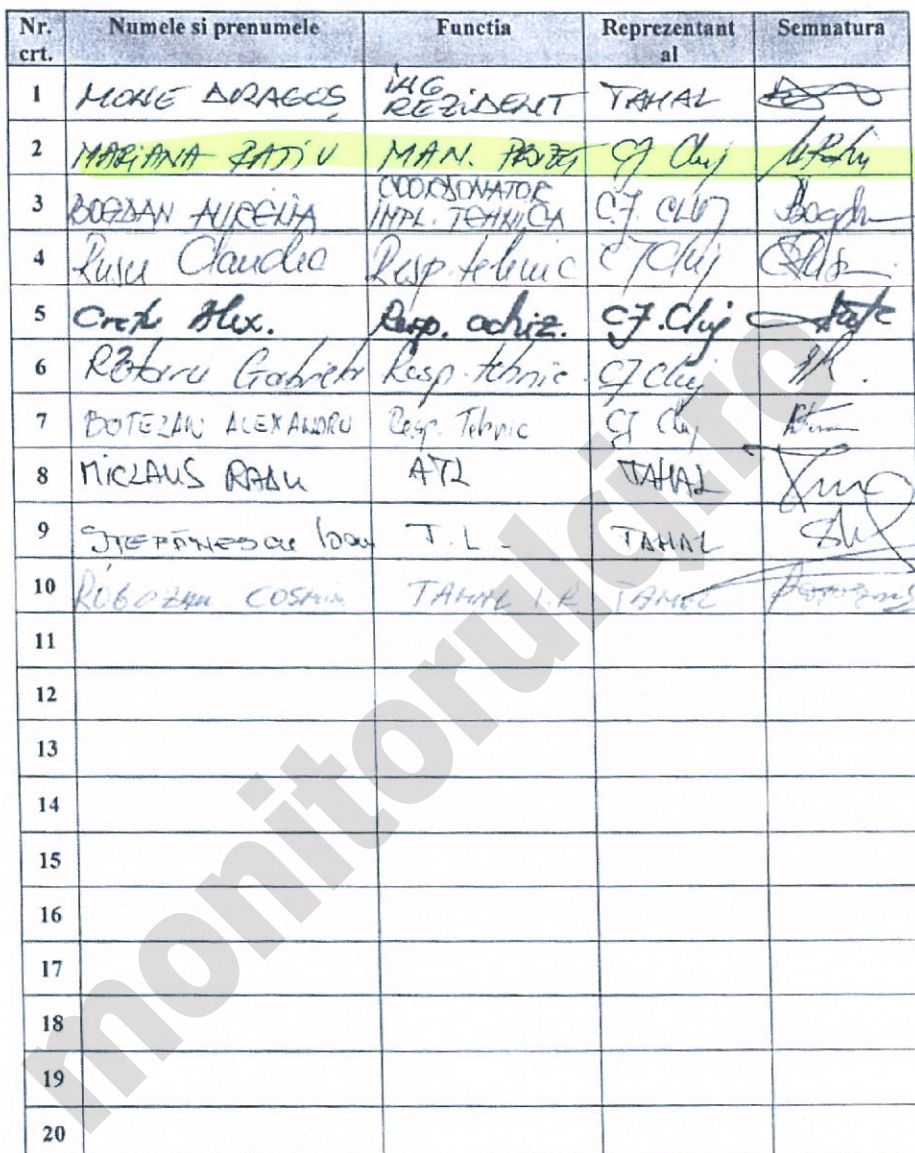 Nr. crt. Numele si prenumele Functia Reprezentant al Semnatura
1 MONE DRAGOȘ ING REZIDENT TAHAL
2 MARIANA RAȚIU MAN. PROIECT CJ Cluj
3 BOGDAN AURELIA COORDONATOR IMPL. TEHNICA CJ. CLUJ Bogdan
4 Rusu Claudia Resp. tehnic CJ Cluj
5 Crețu Alex. Resp. achiz. CJ. Cluj
6 Gabriela Resp. tehnic CJ Cluj
7 BOTEZAN ALEXANDRU Resp. Tehnic CJ Cluj
8 MICLAUS RADU ATL TAHAL
9 ȘTEFĂNESCU Ioan T.L - TAHAL
10 ROBOZAN COSMIN TAHAL I.R
11
12
13
14
15
16
17
18
19
20
monitorulcj.ro